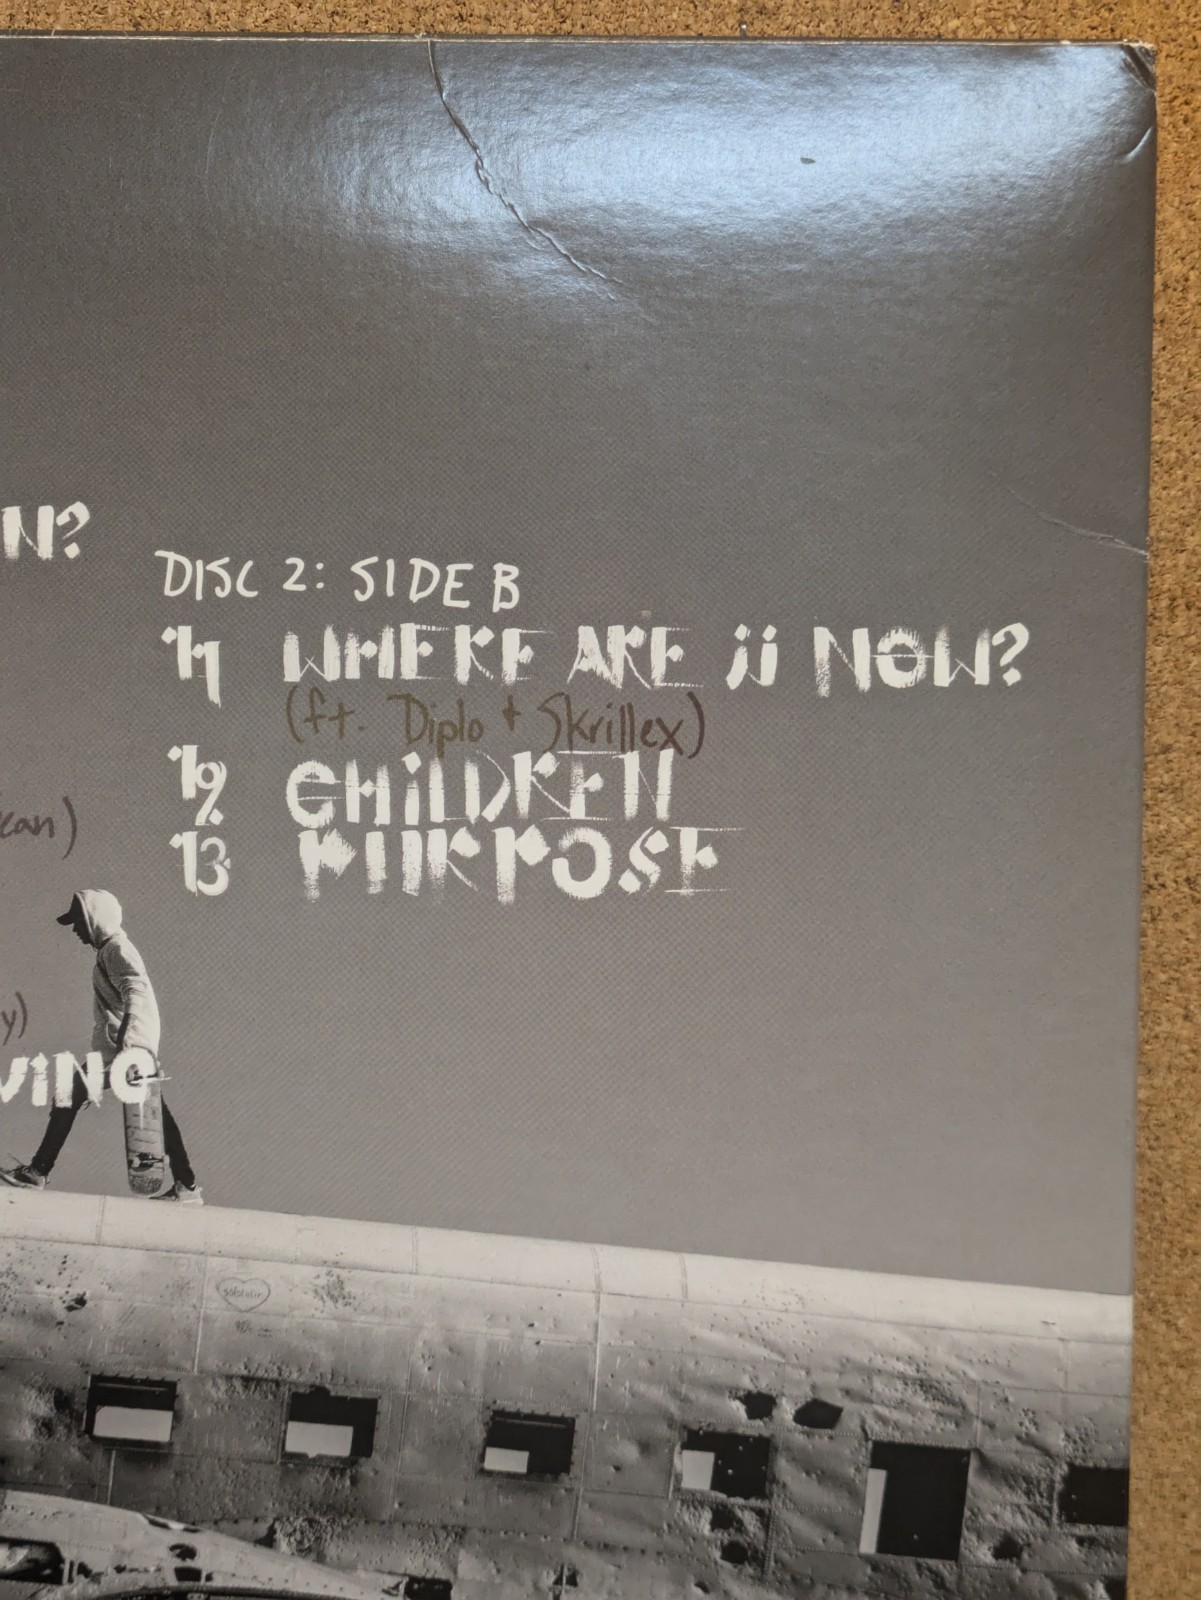 N?
DISC 2: SIDE B
11 WHERE ARE Ü NOW?
(ft. Diplo + Skrillex)
12 CHiLDREN
13 PURPOSE
can)
y)
VING